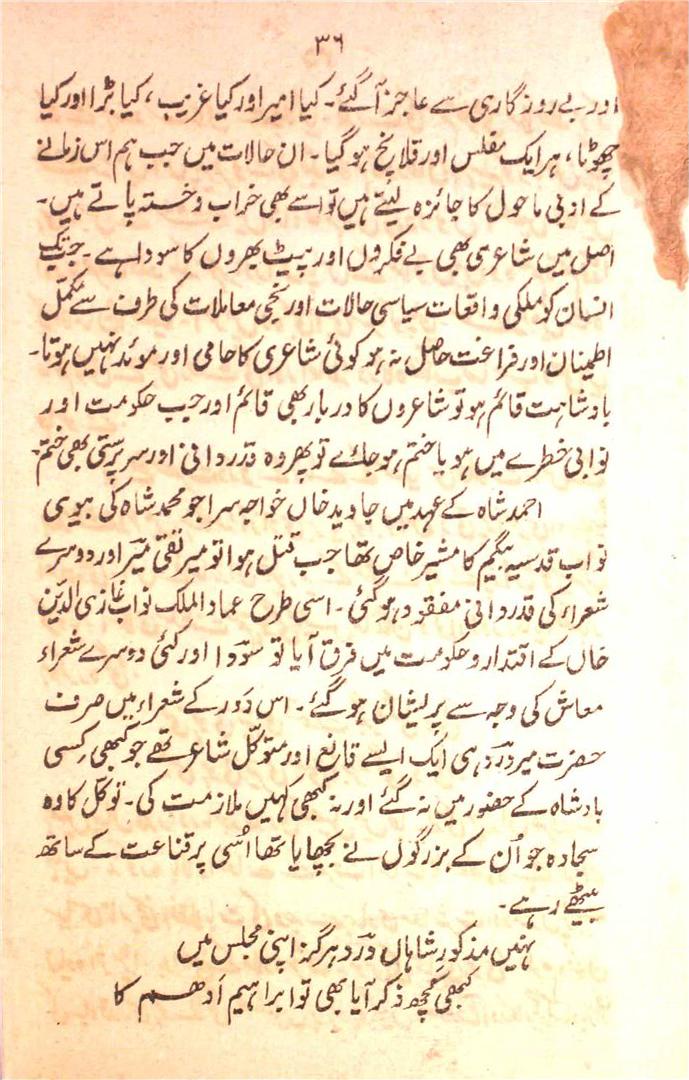 ۳۶
اور بے روزگاری سے عاجز آ گئے۔ کیا امیر اور کیا غریب، کیا بڑا اور کیا
چھوٹا، ہر ایک مفلس اور قلانچ ہو گیا۔ ان حالات میں جب ہم اس زمانے
کے ادبی ماحول کا جائزہ لیتے ہیں تو اسے بھی خراب و خستہ پاتے ہیں۔
اصل میں شاعری بھی بے فکروں اور پیٹ بھروں کا سودا ہے۔ جب تک
انسان کو ملکی واقعات سیاسی حالات اور نجی معاملات کی طرف سے مکمّل
اطمینان اور فراغت حاصل نہ ہو کوئی شاعری کا حامی اور موئد نہیں ہوتا۔
بادشاہت قائم ہو تو شاعروں کا دربار بھی قائم اور جب حکومت اور
نوابی خطرے میں ہو یا ختم ہو جائے تو پھر وہ قدردانی اور سرپرستی بھی ختم۔
احمد شاہ کے عہد میں جاوید خاں خواجہ سرا جو محمد شاہ کی بیوی
نواب قدسیہ بیگم کا مشیر خاص تھا جب قتل ہوا تو میر تقی میرؔ اور دوسرے
شعراء کی قدردانی مفقود ہو گئی۔ اسی طرح عماد الملک نواب غازی الدّین
خاں کے اقتدار و حکومت میں فرق آیا تو سوؔدا اور کئی دوسرے شعراء
معاش کی وجہ سے پریشان ہو گئے۔ اس دَور کے شعراء میں صرف
حضرت میر دردؔ ہی ایک ایسے قانع اور متوکّل شاعر تھے جو کبھی کِسی
بادشاہ کے حضور میں نہ گئے اور نہ کبھی کہیں ملازمت کی۔ توکّل کا وہ
سجادہ جو اُن کے بزرگوں نے بچھایا تھا اُسی پر قناعت کے ساتھ
بیٹھے رہے۔
نہیں مذکورِ شاہاں دردؔ ہرگز اپنی مجلس میں
کبھی کُچھ ذکر آیا بھی تو ابراہیم اَدھم کا